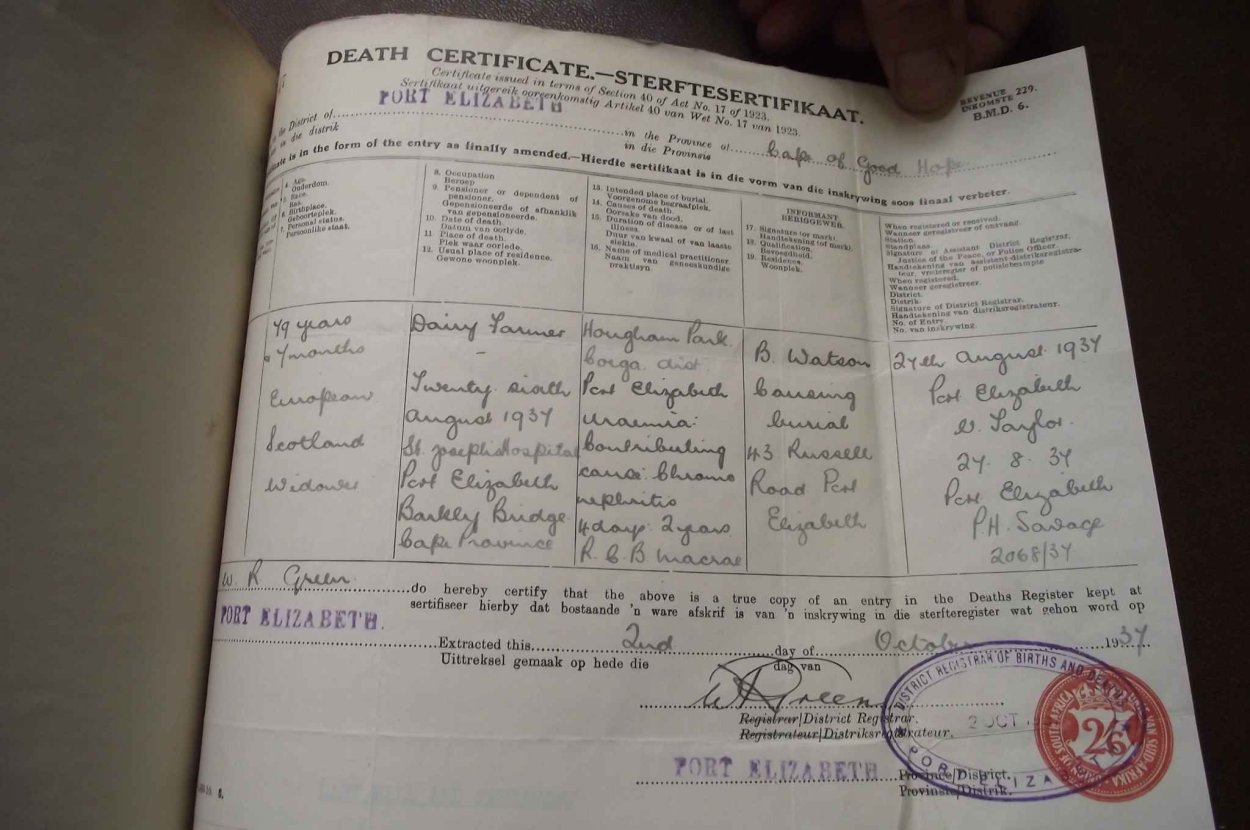 DEATH CERTIFICATE.—STERFTESERTIFIKAAT.
Certificate issued in terms of Section 40 of Act No. 17 of 1923.
Sertifikaat uitgereik ooreenkomstig Artikel 40 van Wet No. 17 van 1923.
REVENUE 229.
INKOMSTE
B.M.D. 6.
PORT ELIZABETH
District of
in die distrik
in the Province of Cape of Good Hope
in die Provinsie
is in the form of the entry as finally amended.—Hierdie sertifikaat is in die vorm van die inskrywing soos finaal verbeter.
4. Age.
Ouderdom.
5. Race.
Ras.
6. Birthplace.
Geboorteplek.
7. Personal status.
Persoonlike staat.
8. Occupation
Beroep
9. Pensioner or dependent of
pensioner.
Gepensioneerde of afhanklik
van gepensioneerde.
10. Date of death.
Datum van oorlyde.
11. Place of death.
Plek waar oorlede.
12. Usual place of residence.
Gewone woonplek.
13. Intended place of burial.
Voorgenome begraafplek.
14. Causes of death.
Oorsake van dood.
15. Duration of disease or of last
illness.
Duur van kwaal of van laaste
siekte.
16. Name of medical practitioner.
Naam van geneeskundige
praktisyn.
INFORMANT
BERIGGEWER.
17. Signature (or mark).
Handtekening (of merk).
18. Qualification.
Bevoegdheid.
19. Residence.
Woonplek.
When registered or received.
Wanneer geregistreer of ontvang.
Station.
Standplaas.
Signature of Assistant District Registrar,
Justice of the Peace, or Police Officer.
Handtekening van assistent-distriksregistra-
teur, vrederegter of polisiebeampte
When registered.
Wanneer geregistreer.
District.
Distrik.
Signature of District Registrar.
Handtekening van distriksregistrateur.
No. of Entry.
No. van inskrywing.
79 years
7 months
European
Scotland
Widower
Dairy Farmer
-
Twenty sixth
August 1937
St. Josephs Hospital
Port Elizabeth
Barkly Bridge
Cape Province
Hougham Park
Coega dist.
Port Elizabeth
Uraemia:
Contributing
cause: Chronic
nephritis
4 days: 2 years
R. C. B. Macrae
B. Watson
Causing
burial
43 Russell
Road Port
Elizabeth
27th August 1937
Port Elizabeth
Taylor
27. 8. 37
Port Elizabeth
P.H. Savage
2068/37
W. R. Green do hereby certify that the above is a true copy of an entry in the Deaths Register kept at
sertifiseer hierby dat bostaande 'n ware afskrif is van 'n inskrywing in die sterfteregister wat gehou word op
PORT ELIZABETH.
Extracted this 2nd day of October 1937.
Uittreksel gemaak op hede die dag van
W R Green
Registrar/District Registrar.
Registrateur/Distriksregistrateur.
PORT ELIZABETH
Province/District.
Provinsie/Distrik.
DISTRICT REGISTRAR OF BIRTHS AND DEATHS
2 OCT
PORT ELIZABETH
SOUTH AFRICA
VAN SUID-AFRIKA
2/6